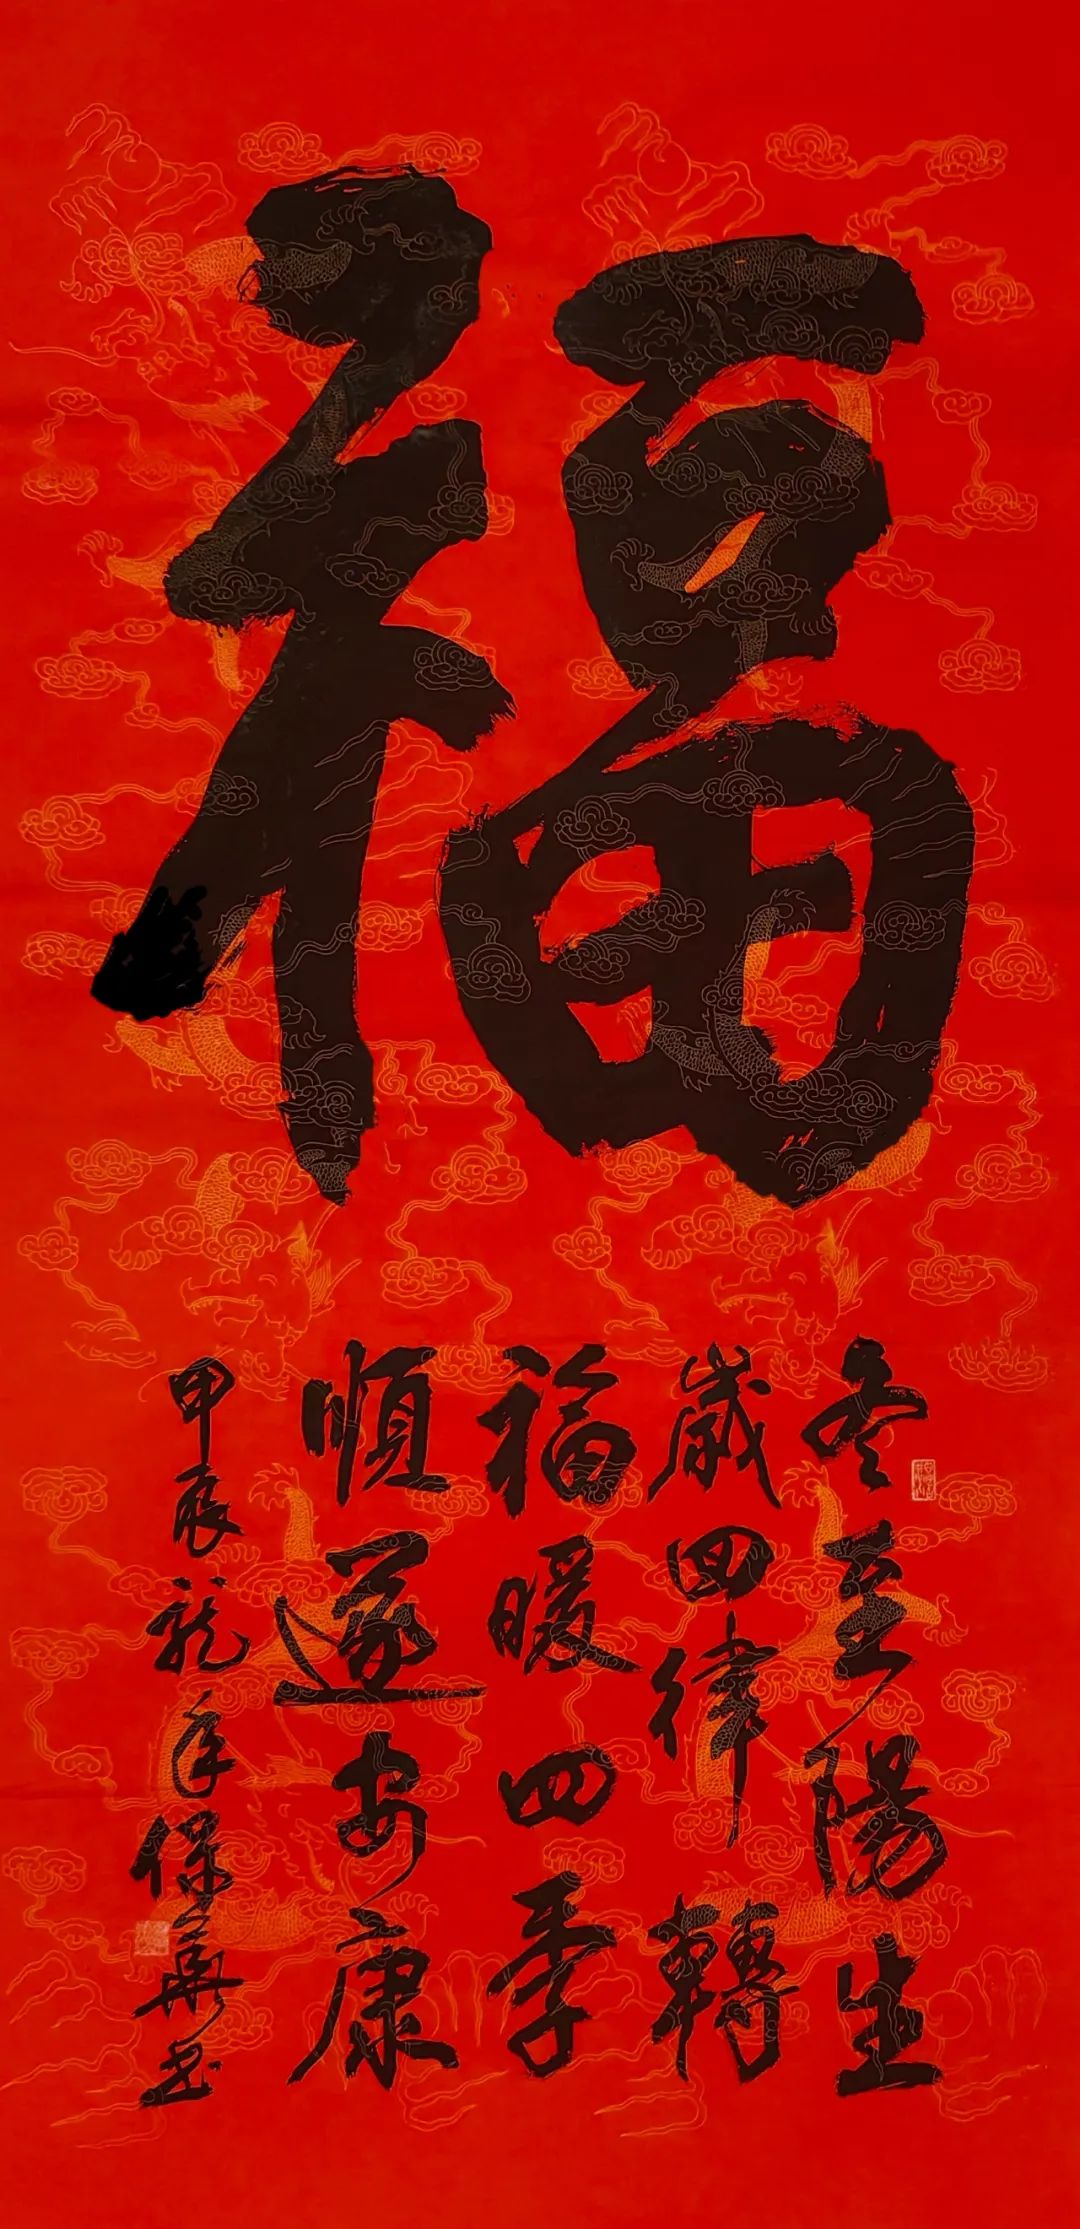 福
冬至陽生
歲回律轉
福暖四季
順遂安康
甲辰龍年保華书